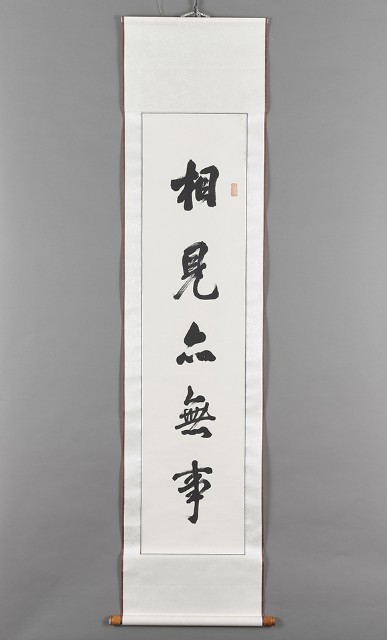 相見亦無事